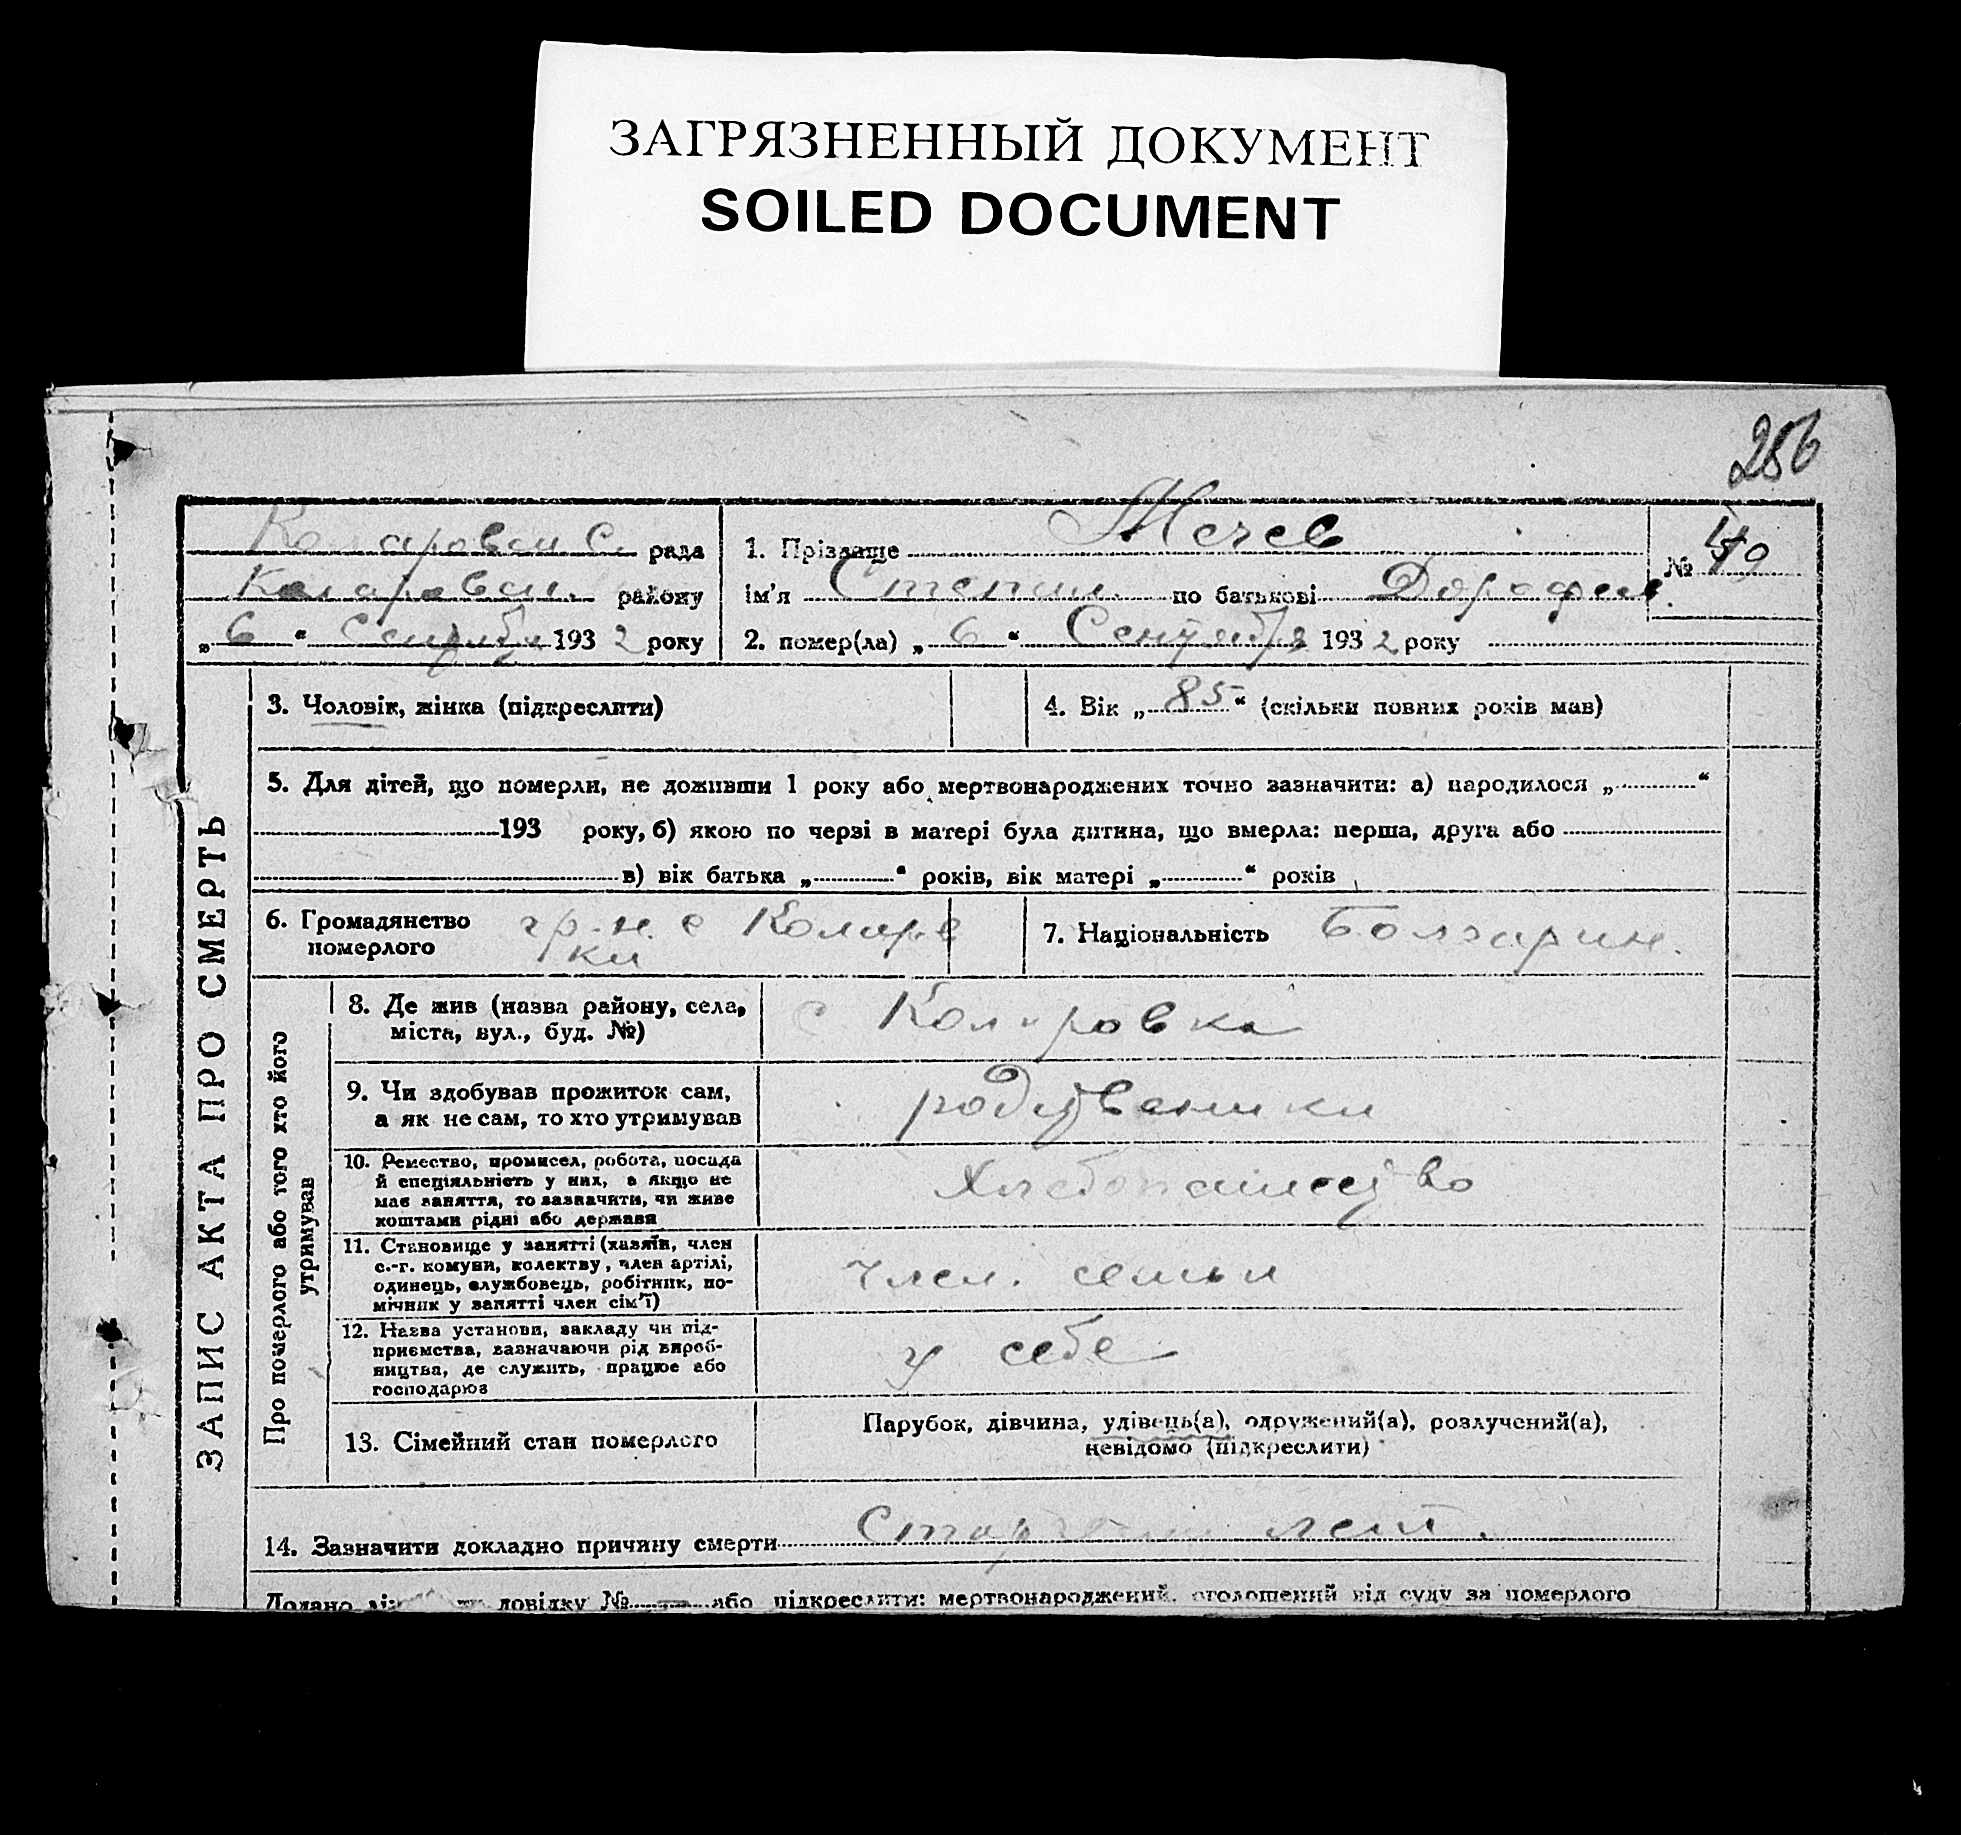 ЗАГРЯЗНЕННЫЙ ДОКУМЕНТ
SOILED DOCUMENT
256
рада
района
„ 6 “ Сентября 1932 року
1. Прізвище Мечев
ім'я Степан. по батькові Дорофеев.
2. помер(ла) „ 6 “ Сентября 1932 року
№
ЗАПИС АКТА ПРО СМЕРТЬ
3. Чоловік, жінка (підкреслити)
4. Вік „ 85 “ (скільки повних років мав)
5. Для дітей, що померли, не доживши 1 року або мертвонароджених точно зазначити: а) народилося „ “
193 року, б) якою по черзі в матері була дитина, що вмерла: перша, друга або
в) вік батька „ “ років, вік матері „ “ років
6. Громадянство
померлого
гр-н. с Коларов
ки
7. Національність Болгарин.
Про померлого або того хто його
утримував
8. Де жив (назва району, села,
міста, вул., буд. №)
с Коларовка
9. Чи здобував прожиток сам,
а як не сам, то хто утримував
родственики
10. Ремество, промисел, робота, посада
й спеціяльність у них, а якщо не
має заняття, то зазначити, чи живе
коштами рідні або держави
Хлебопашество
11. Становище у занятті (хазяїн, член
с.-г. комуни, колектву, член артілі,
одинець, службовець, робітник, по-
мічник у занятті член сім'ї)
член. семьи
12. Назва установи, закладу чи під-
приємства, зазначаючи рід вироб-
ництва, де служить, працює або
господарює
у себе
13. Сімейний стан померлого
Парубок, дівчина, удівець(а), одружений(а), розлучений(а),
невідомо (підкреслити)
14. Зазначити докладно причину смерти лет.
Додано довідку № або підкреслити: мертвонароджений, оголошений від суду за померлого